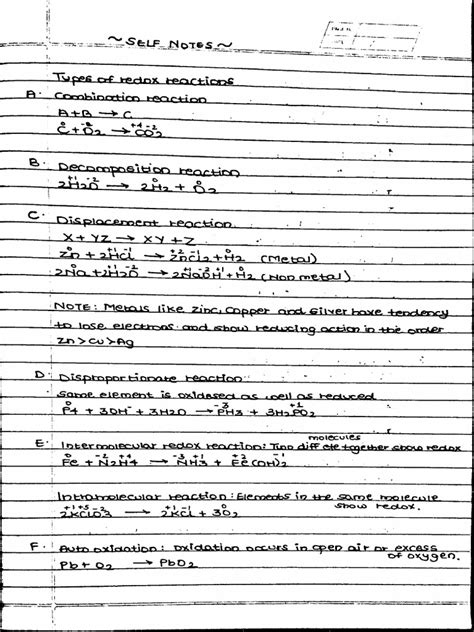 ~ SELF NOTES ~
Types of redox reactions
A. Combination reaction
A+B → C
C⁰ + O₂ → C⁺⁴O₂⁻²
B. Decomposition reaction
2H₂⁺¹O⁻² → 2H₂⁰ + O₂⁰
C. Displacement reaction
X + YZ → XY + Z
Zn⁰ + 2H⁺¹Cl⁻¹ → Zn⁺²Cl₂⁻¹ + H₂⁰ (Metal)
2Na + 2H₂O → 2NaOH + H₂ (Non metal)
NOTE: Metals like zinc, copper and silver have tendency
to lose electrons and show reducing action in the order
Zn > Cu > Ag
D. Disproportionate reaction
Same element is oxidesed as well as reduced
P₄⁰ + 3OH⁻ + 3H₂O → P⁻³H₃ + 3H₂P⁺¹O₂
molecules
E. Intermolecular redox reaction: Two together show redox
Fe + N₂H₄ → NH₃ + Fe(OH)₂
Intramolecular reaction: Elements in the same molecule
show redox.
2KClO₃ → 2KCl + 3O₂
F. Auto oxidation: Oxidation occurs in open air or excess
of oxygen.
Pb + O₂ → PbO₂